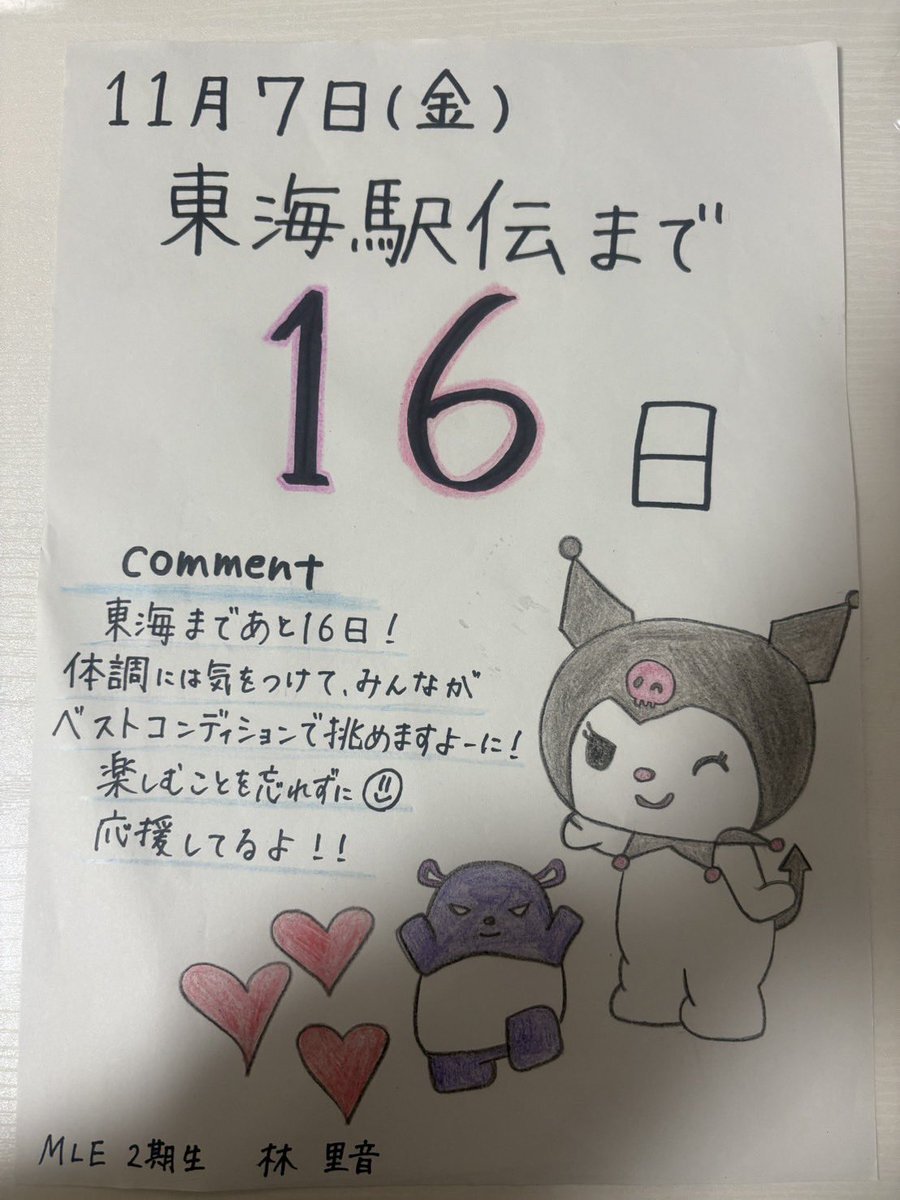 11月7日(金)
東海駅伝まで
16日
comment
東海まであと16日!
体調には気をつけて、みんなが
ベストコンディションで挑めますよーに!
楽しむことを忘れずに
応援してるよ!!
MLE 2期生 林 里音